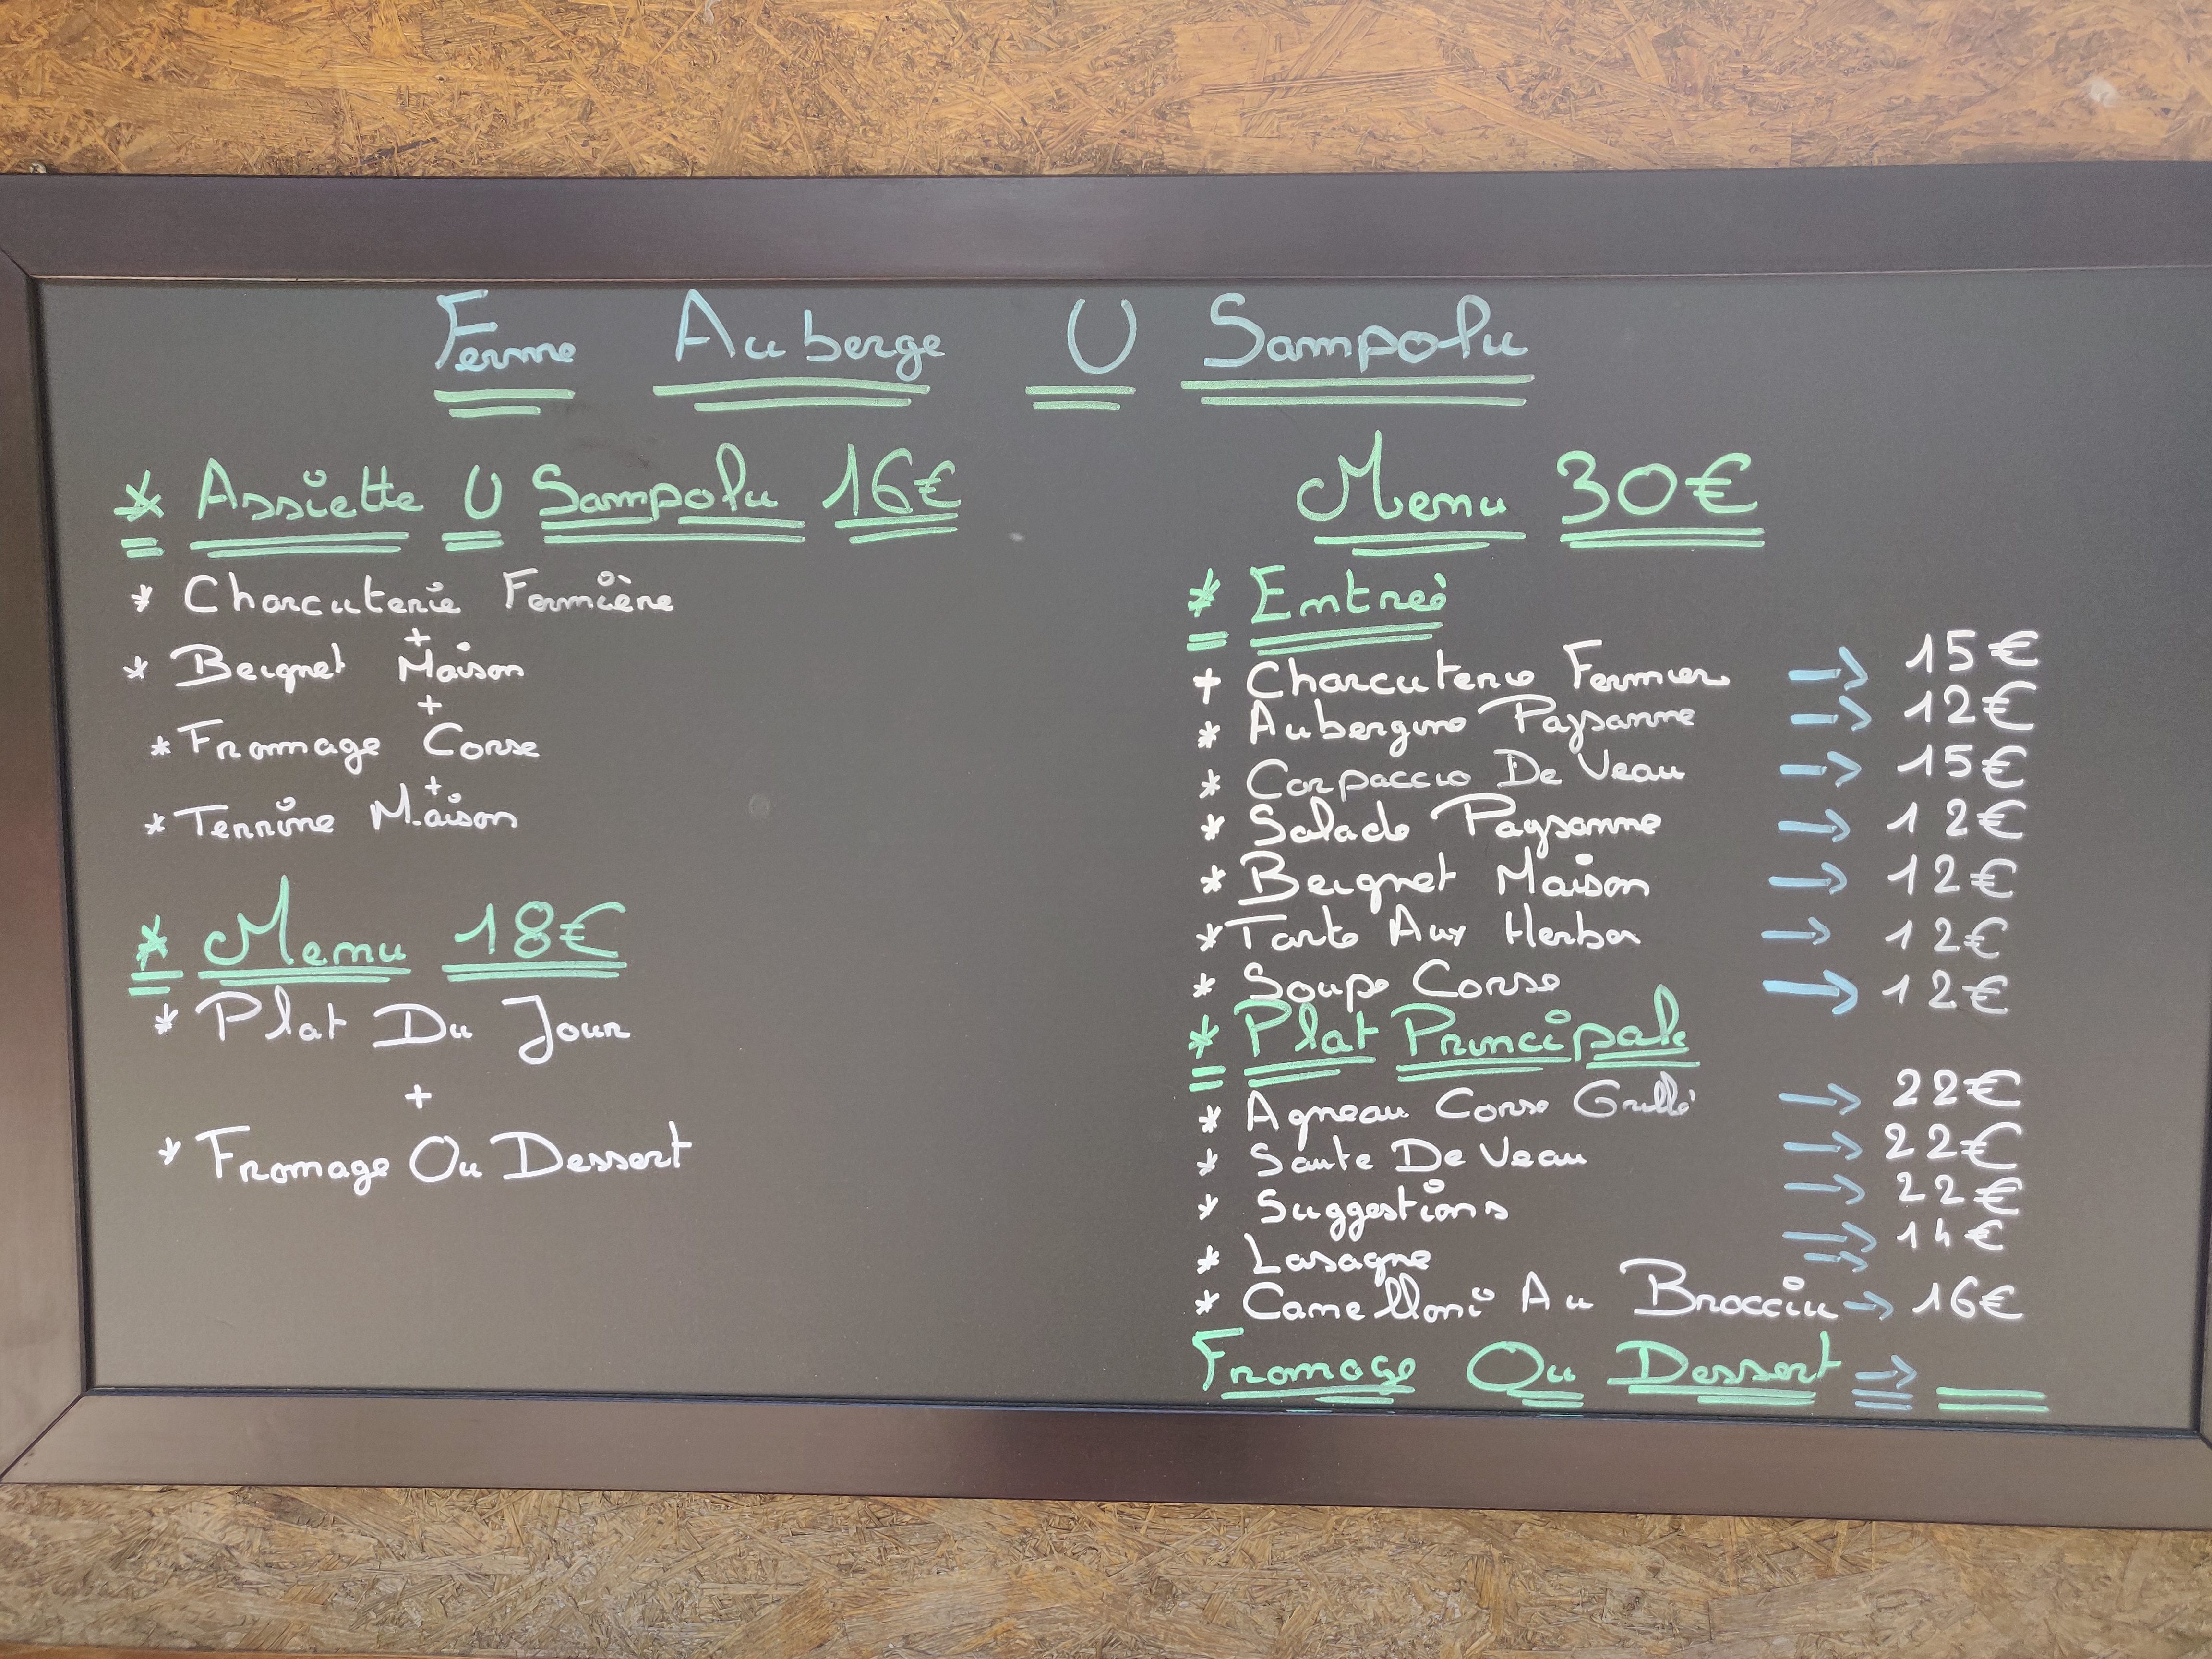 Ferme Auberge U Sampolu
* Assiette U Sampolu 16€
* Charcuterie Fermière
+
* Beignet Maison
+
* Fromage Corse
+
* Terrine Maison
* Menu 18€
* Plat Du Jour
+
* Fromage Ou Dessert
Menu 30€
* Entreé
+ Charcuterie Fermier → 15€
* Aubergine Paysanne → 12€
* Carpaccio De Veau → 15€
* Salade Paysanne → 12€
* Beignet Maison → 12€
* Tarte Aux Herbes → 12€
* Soupe Corse → 12€
* Plat Principale
* Agneau Corse Grillé → 22€
* Saute De Veau → 22€
* Suggestions → 22€
* Lasagne → 14€
* Canelloni Au Brocciu → 16€
Fromage Ou Dessert →